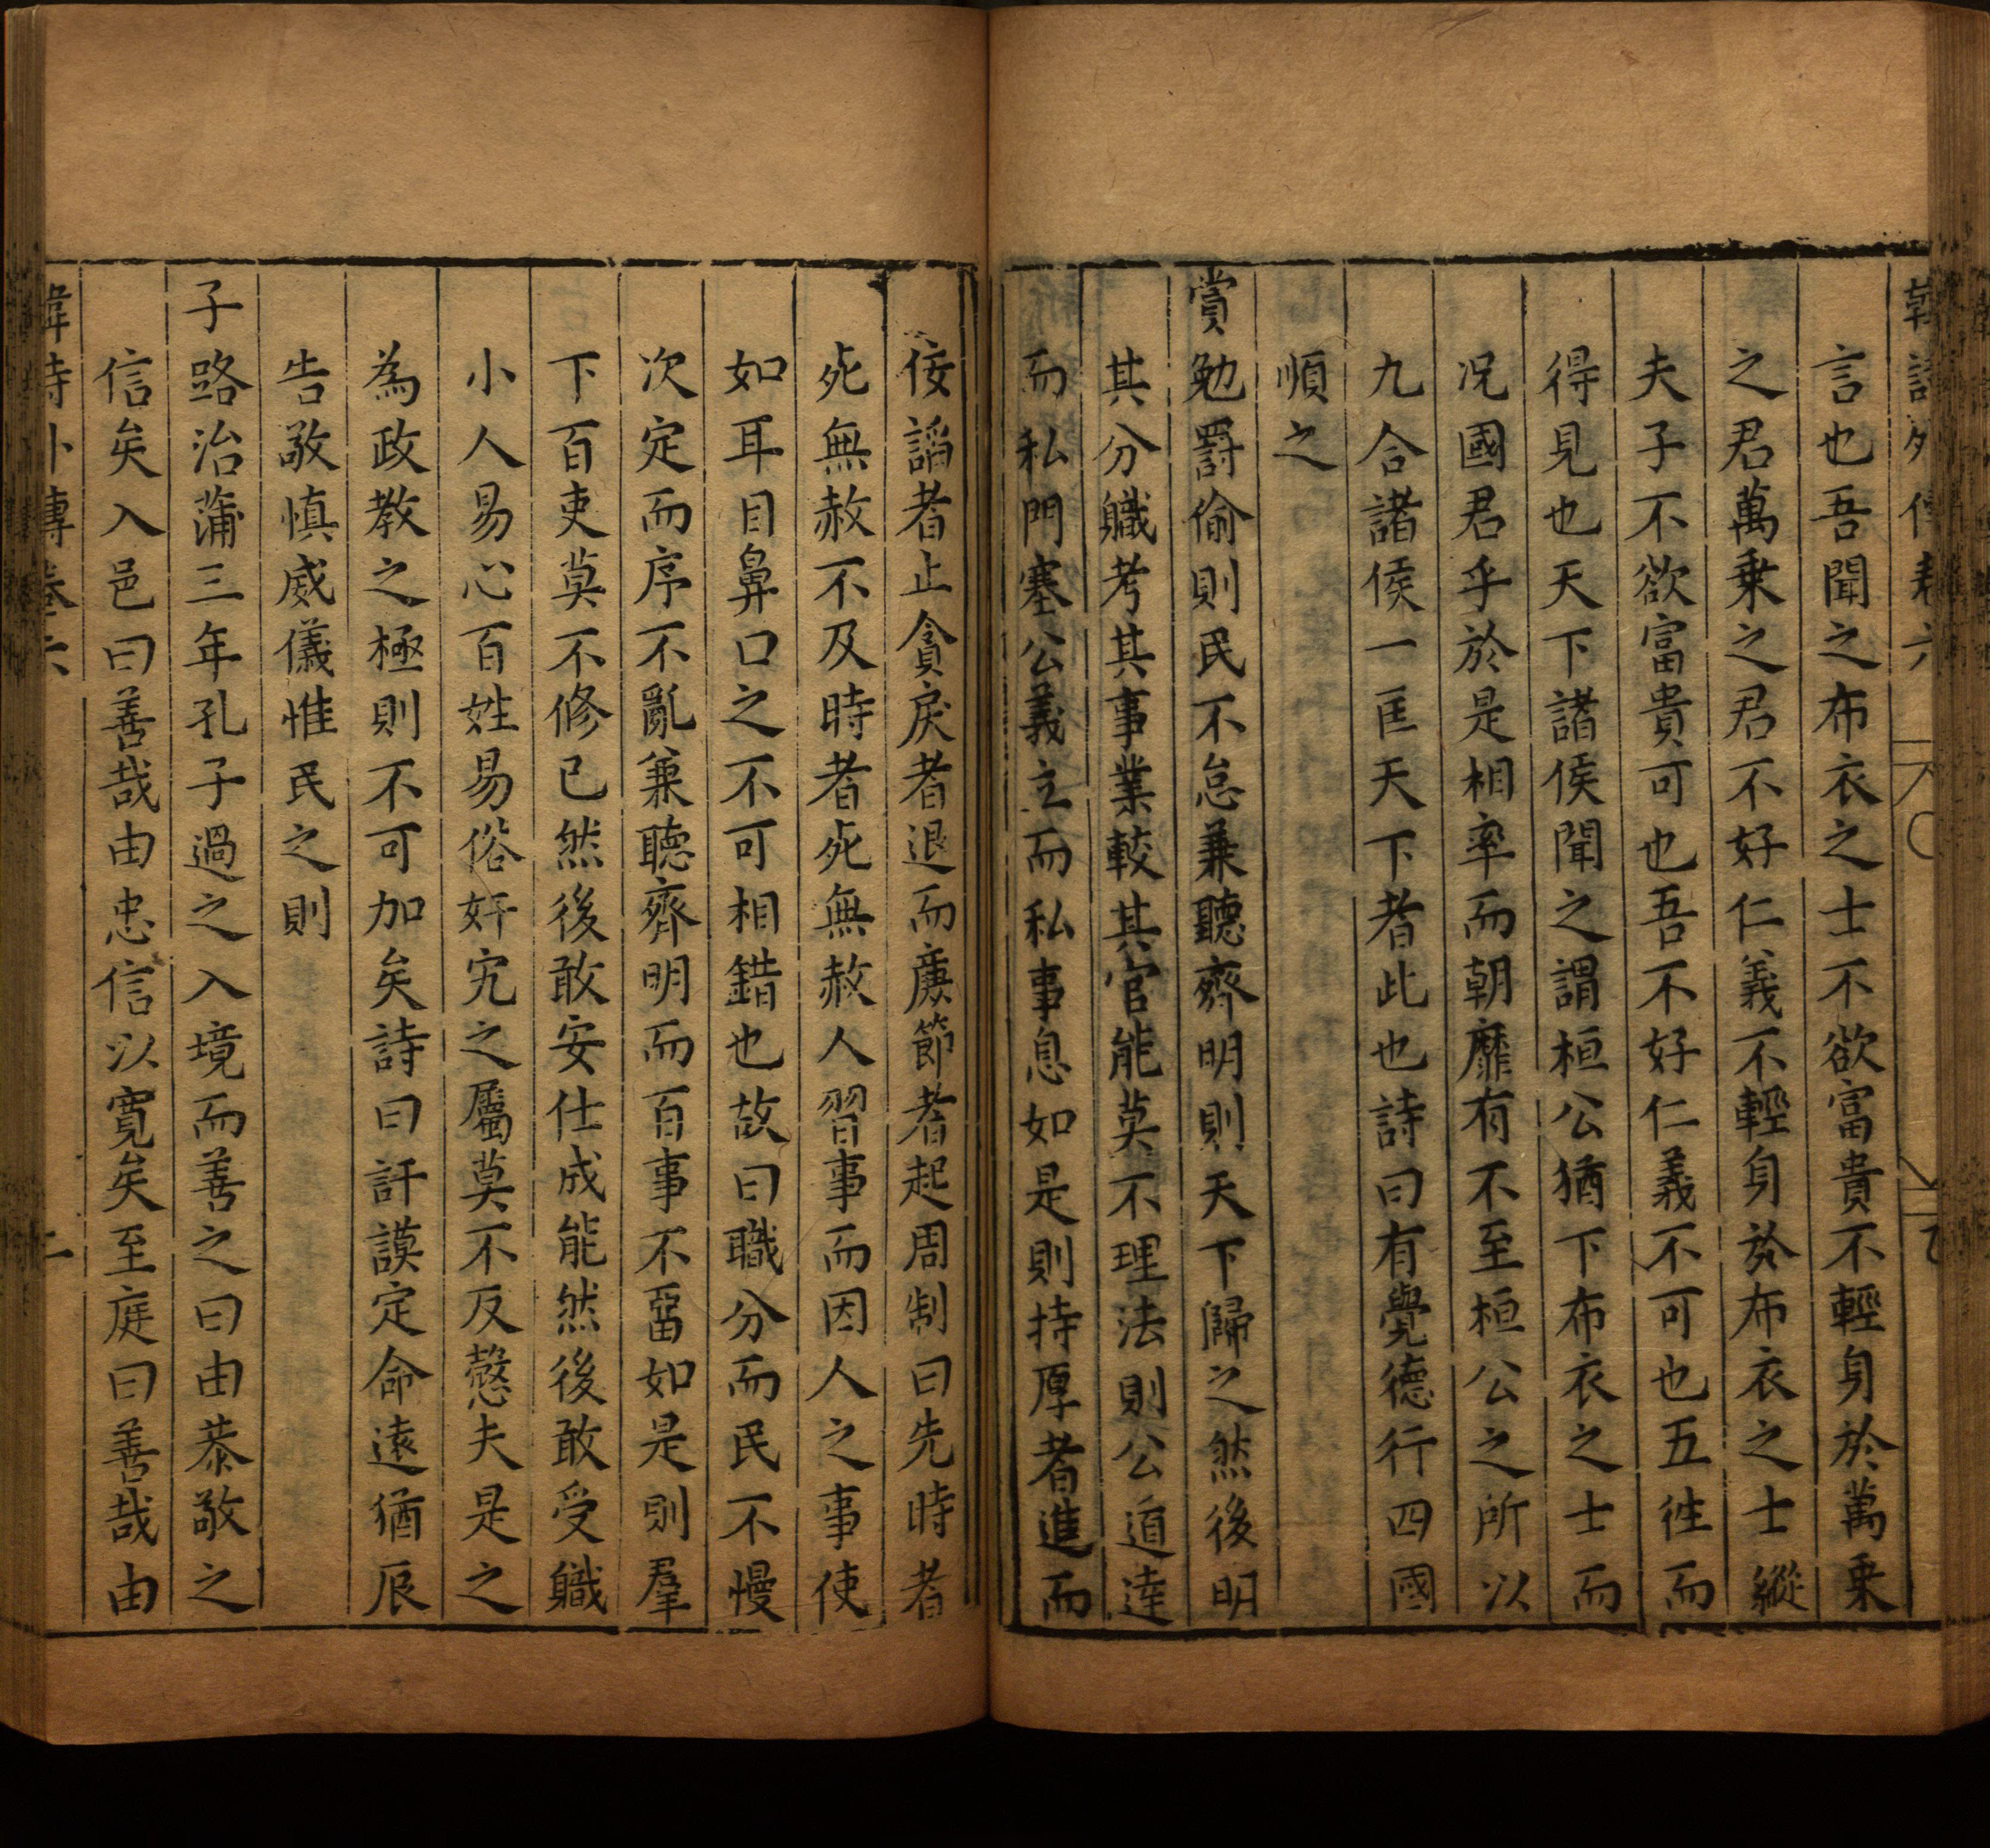 韓詩外傳卷六
言也吾聞之布衣之士不欲富貴不輕身於萬乗
之君萬乗之君不好仁義不輕身於布衣之士縱
夫子不欲富貴可也吾不好仁義不可也五徃而
得見也天下諸侯聞之謂桓公猶下布衣之士而
况國君乎於是相率而朝靡有不至桓公之所以
九合諸侯一匡天下者此也詩曰有覺德行四國
順之
賞勉罸偷則民不怠兼聽齊明則天下歸之然後明
其分職考其事業較其官能莫不理法則公道達
而私門塞公義立而私事息如是則持厚者進而
佞謟者止貪戾者退而廉節者起周制曰先時者
死無赦不及時者死無赦人習事而因人之事使
如耳目鼻口之不可相錯也故曰職分而民不慢
次定而序不亂兼聽齊明而百事不畱如是則羣
下百吏莫不修已然後敢安仕成能然後敢受職
小人易心百姓易俗奸宄之屬莫不反慤夫是之
為政教之極則不可加矣詩曰訏謨定命遠猶辰
告敬慎威儀惟民之則
子路治蒲三年孔子過之入境而善之曰由恭敬之
信矣入邑曰善哉由忠信以寛矣至庭曰善哉由
韓詩外傳卷六
二